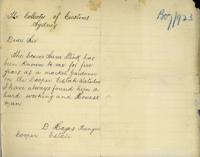 The Collector of Customs
Sydney
Dear Sir
The bearer has
been known to me for five
years as a market Gardener
on the Cooper Estate
I have always found him a
hard working and Honest
man
D. Hayes
Cooper Estate